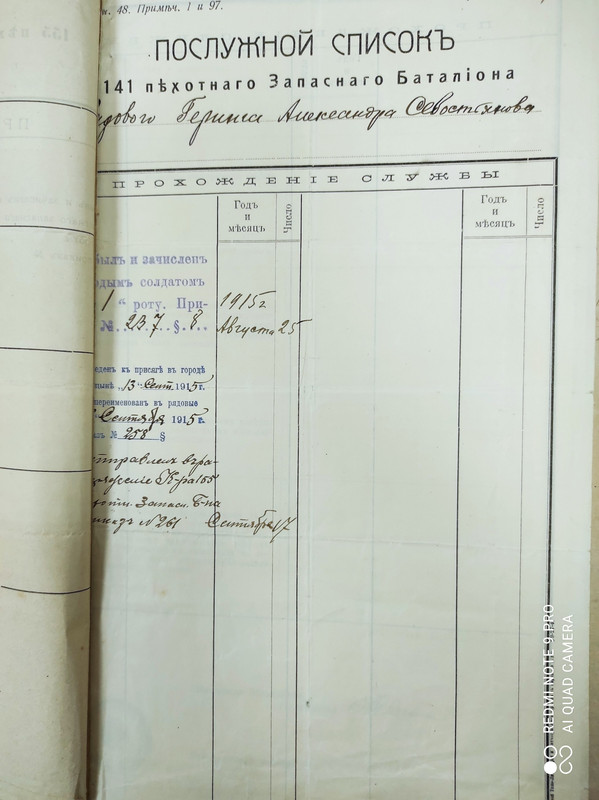 48. Примѣч. 1 и 97.
ПОСЛУЖНОЙ СПИСОКЪ
141 пѣхотнаго Запаснаго Баталіона
Александра Севостьянова
ПРОХОЖДЕНІЕ СЛУЖБЫ
Годъ и мѣсяцъ
Число
Годъ и мѣсяцъ
Число
былъ и зачисленъ
одымъ солдатомъ
1 роту. При-
№ 237 § 8
1915 г
Августа 25
еденъ къ присягѣ въ городѣ
13 Сент. 1915 г.
переименованъ въ рядовые
Сентября 1915 г.
№ 258 §
отправленъ въ
К-ра 155
Запасн. Б-на
№ 261 Сентября 17
REDMI NOTE 9 PRO
AI QUAD CAMERA